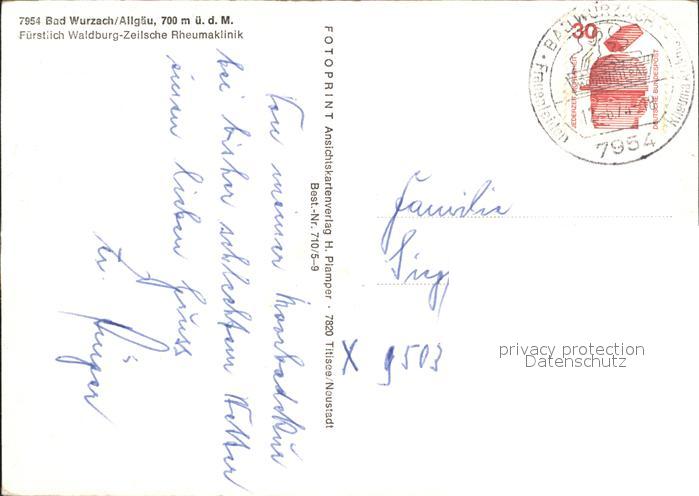 7954 Bad Wurzach/Allgäu, 700 m ü. d. M.
Fürstlich Waldburg-Zeilsche Rheumaklinik
Von meiner Moorbadekur
bei bisher schlechtem Wetter
einen lieben Gruss
Fr.
FOTOPRINT Ansichtskartenverlag H. Plamper · 7820 Titisee/Neustadt
Best.-Nr. 710/5-9
30
JEDERZEIT SICHERHEIT
DEUTSCHE BUNDESPOST
BAD WURZACH
7954
Familie
x 9503
privacy protection
Datenschutz